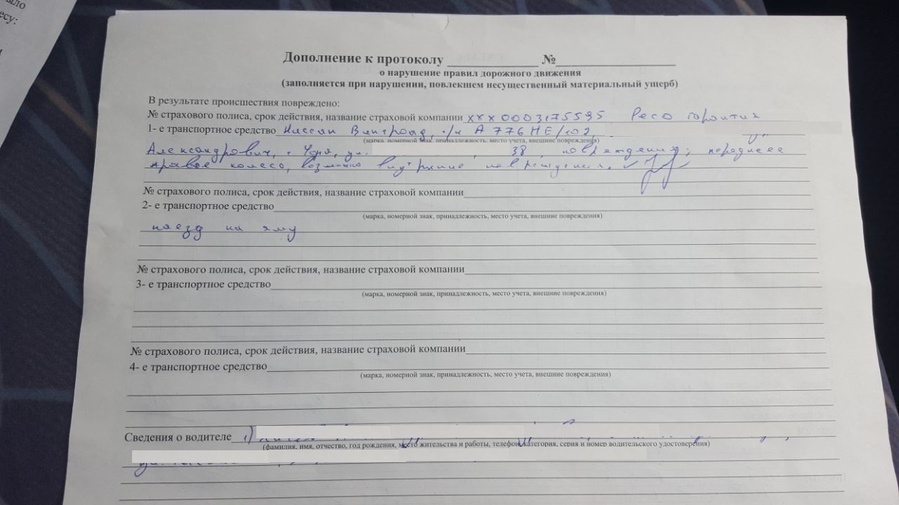 есу:
Дополнение к протоколу №
о нарушение правил дорожного движения
(заполняется при нарушении, повлекшем несущественный материальный ущерб)
В результате происшествия повреждено:
№ страхового полиса, срок действия, название страховой компании ХХХ 0003175595 Ресо гарантия
1- е транспортное средство Ниссан Вингроад, г/н А 776 НЕ/
(марка, номерной знак, принадлежность, место учета, внешние повреждения)
Александрович, г. ул. 38, повреждения: переднее
правое колесо, возможно внутренние повреждения.
№ страхового полиса, срок действия, название страховой компании
2- е транспортное средство
(марка, номерной знак, принадлежность, место учета, внешние повреждения)
наезд на яму
№ страхового полиса, срок действия, название страховой компании
3- е транспортное средство
(марка, номерной знак, принадлежность, место учета, внешние повреждения)
№ страхового полиса, срок действия, название страховой компании
4- е транспортное средство
(марка, номерной знак, принадлежность, место учета, внешние повреждения)
Сведения о водителе 1)
(фамилия, имя, отчество, год рождения, место жительства и работы, телефон, категория, серия и номер водительского удостоверения)